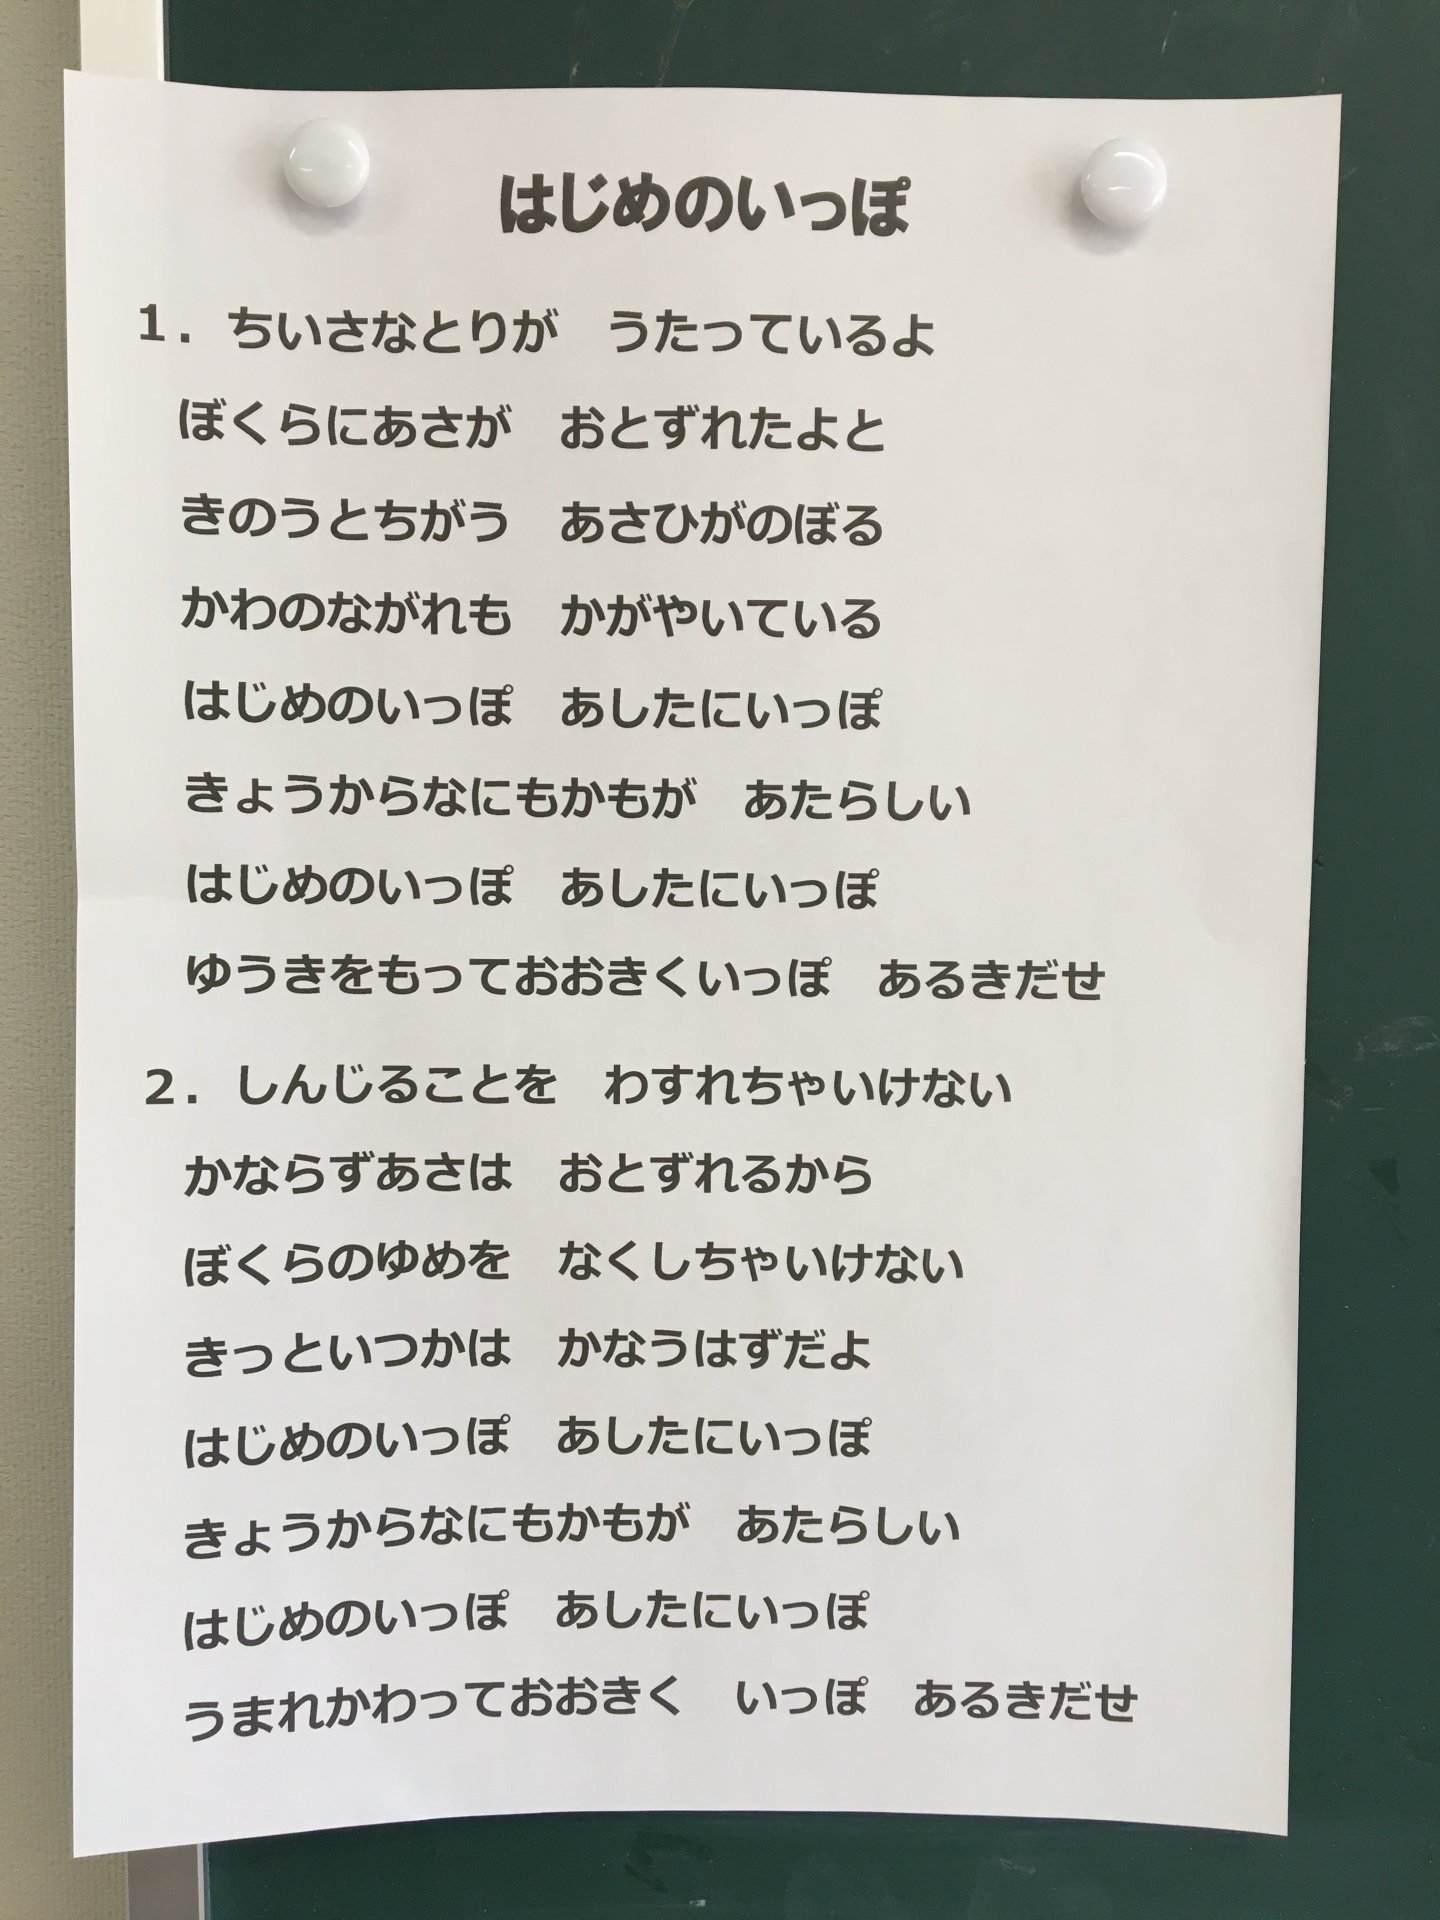 はじめのいっぽ
１．ちいさなとりが　うたっているよ
ぼくらにあさが　おとずれたよと
きのうとちがう　あさひがのぼる
かわのながれも　かがやいている
はじめのいっぽ　あしたにいっぽ
きょうからなにもかもが　あたらしい
はじめのいっぽ　あしたにいっぽ
ゆうきをもっておおきくいっぽ　あるきだせ
２．しんじることを　わすれちゃいけない
かならずあさは　おとずれるから
ぼくらのゆめを　なくしちゃいけない
きっといつかは　かなうはずだよ
はじめのいっぽ　あしたにいっぽ
きょうからなにもかもが　あたらしい
はじめのいっぽ　あしたにいっぽ
うまれかわっておおきく　いっぽ　あるきだせ